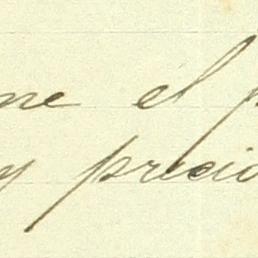 ne el p
y precio